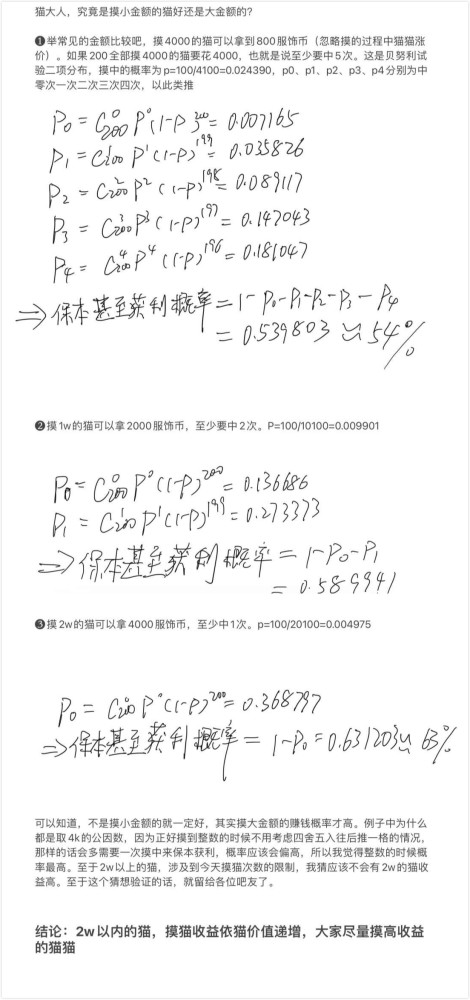 猫大人，究竟是摸小金额的猫好还是大金额的？
❶举常见的金额比较吧，摸4000的猫可以拿到800服饰币（忽略摸的过程中猫猫涨
价）。如果200全部摸4000的猫要花4000，也就是说至少要中5次。这是贝努利试
验二项分布，摸中的概率为p=100/4100=0.024390，p0、p1、p2、p3、p4分别为中
零次一次二次三次四次，以此类推
P₀ = C⁰₂₀₀ P⁰(1-P)²⁰⁰ = 0.007165
P₁ = C¹₂₀₀ P¹(1-P)¹⁹⁹ = 0.035826
P₂ = C²₂₀₀ P²(1-P)¹⁹⁸ = 0.089117
P₃ = C³₂₀₀ P³(1-P)¹⁹⁷ = 0.147043
P₄ = C⁴₂₀₀ P⁴(1-P)¹⁹⁶ = 0.181047
⇒保本甚至获利概率 = 1-P₀-P₁-P₂-P₃-P₄
= 0.539803 ≈ 54%
❷摸1w的猫可以拿2000服饰币，至少要中2次。P=100/10100=0.009901
P₀ = C⁰₂₀₀ P⁰(1-P)²⁰⁰ = 0.136686
P₁ = C¹₂₀₀ P¹(1-P)¹⁹⁹ = 0.273373
⇒保本甚至获利概率 = 1-P₀-P₁
= 0.589941
❸摸2w的猫可以拿4000服饰币，至少中1次。p=100/20100=0.004975
P₀ = C⁰₂₀₀ P⁰(1-P)²⁰⁰ = 0.368797
⇒保本甚至获利概率 = 1-P₀ = 0.631203 ≈ 63%
可以知道，不是摸小金额的就一定好，其实摸大金额的赚钱概率才高。例子中为什么
都是取4k的公因数，因为正好摸到整数的时候不用考虑四舍五入往后推一格的情况，
那样的话会多需要一次摸中来保本获利，概率应该会偏高，所以我觉得整数的时候概
率最高。至于2w以上的猫，涉及到今天摸猫次数的限制，我猜应该不会有2w的猫收
益高。至于这个猜想验证的话，就留给各位吧友了。
结论：2w以内的猫，摸猫收益依猫价值递增，大家尽量摸高收益
的猫猫